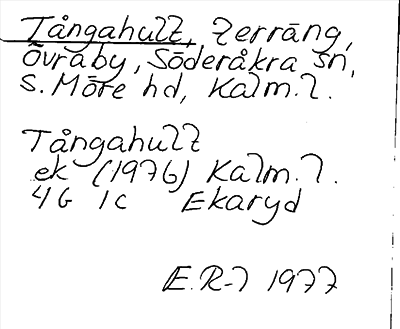 Tångahult, terräng,
Övraby, Söderåkra sn,
S. Möre hd, Kalm. l.
Tångahult
ek (1976) Kalm. l.
4G 1c Ekaryd
E.R-l 1977